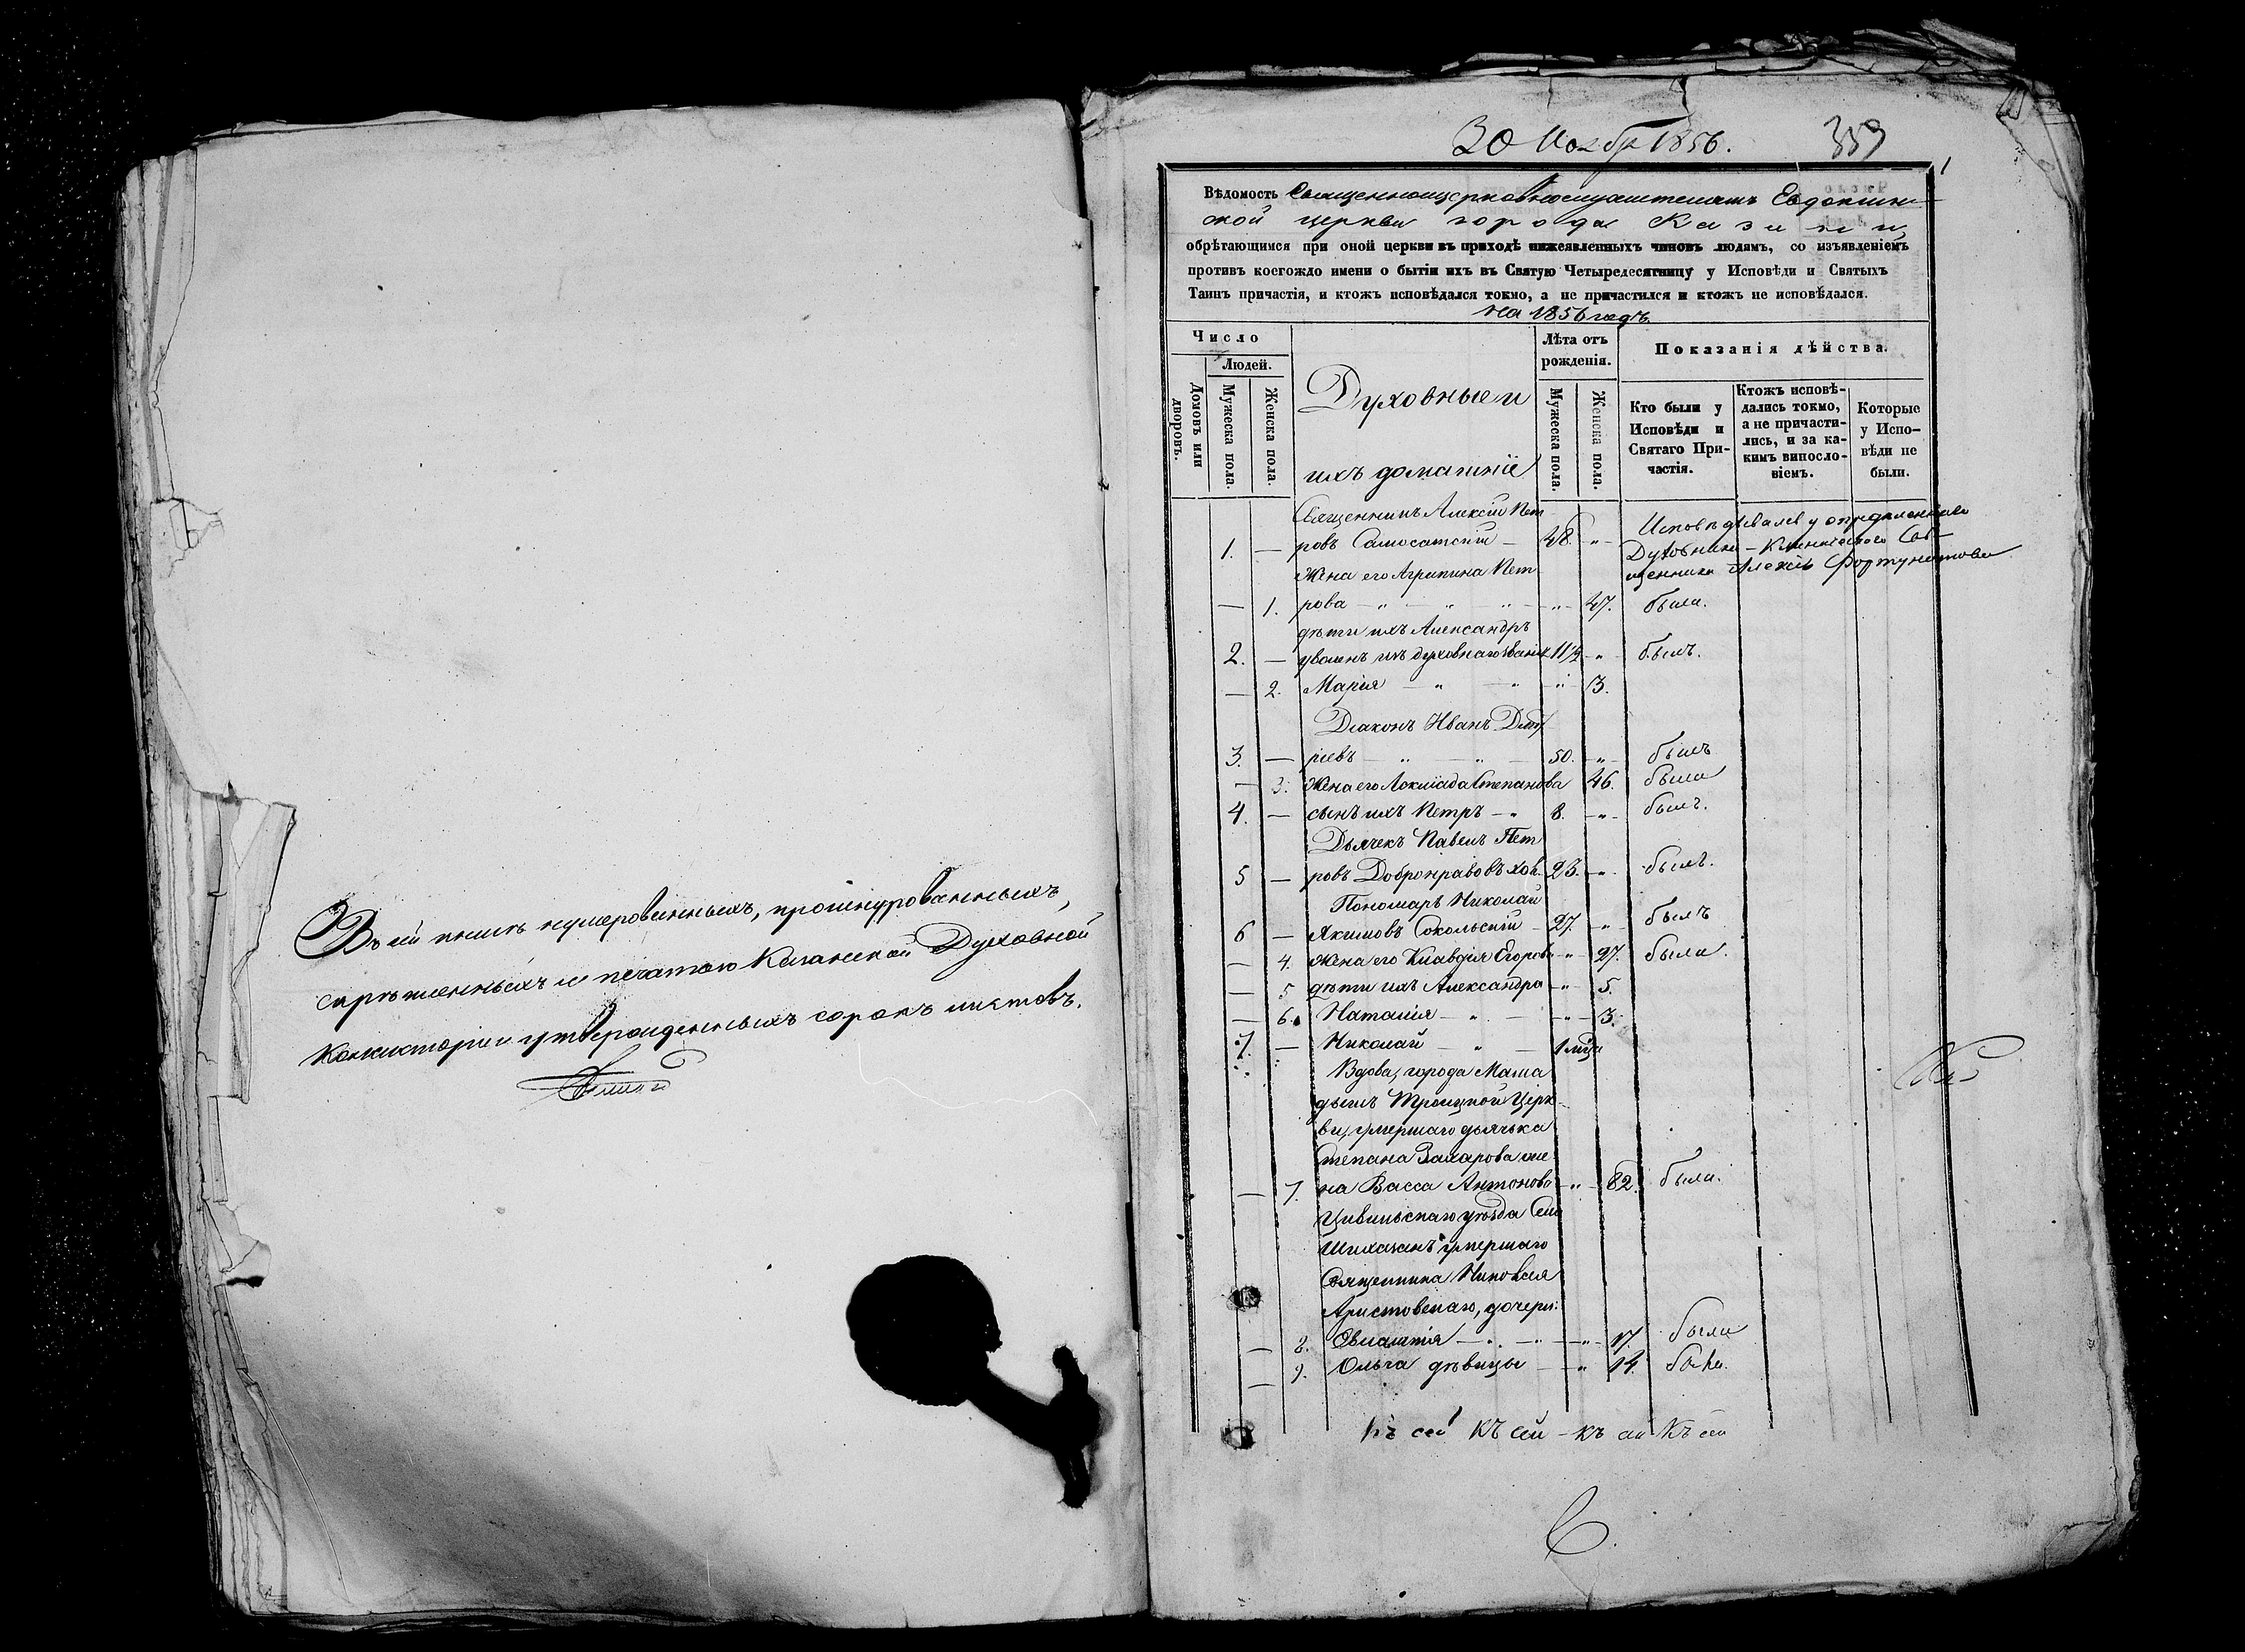 Въ сей книгѣ нумерованныхъ, прошнурованныхъ,
скрѣпленныхъ и печатью Казанской Духовной
Консисторіи утвержденныхъ сорокъ листовъ.
30 Ноябр 1856. 359
1
Вѣдомость Священноцерковнослужителямъ Евдокіин-
ской церкви города Казани,
обрѣтающимся при оной церкви въ приходѣ нижеявленныхъ чиновъ людямъ, со изъявленіемъ
противъ коегождо имени о бытіи ихъ въ Святую Четыредесятницу у Исповѣди и Святыхъ
Таинъ причастія, и ктожъ исповѣдался токмо, а не причастился и ктожъ не исповѣдался.
на 1856 годъ.
Число
Людей.
Домовъ или дворовъ.
Мужеска пола.
Женска пола.
Духовные и
ихъ домашніе
Лѣта отъ рожденія.
Мужеска пола.
Женска пола.
Показанія дѣйства.
Кто были у Исповѣди и Святаго Причастія.
Ктожъ исповѣ-
дались токмо,
а не причасти-
лись, и за ка-
кимъ виносло-
віемъ.
Которые
у Испо-
вѣди не
были.
Священникъ Алексій Пет
1. — ровъ Самосатскій — 48. „ Исповѣдывался у опредѣленнаго
Духовника — Свя-
щенника Алексія Фортунатова
Жена его Агрипина Пет
— 1. рова — „ — „ — „ — „ 47. была.
дѣти ихъ Александръ
2. — уволенъ изъ духовнаго званія 11½ „ былъ.
— 2. Марія — „ — „ — „ 3.
Діаконъ Иванъ Дмит
3. — ріевъ — „ — „ — 50. „ былъ
— 3. Жена его Степанова 46. была
4. — сынъ ихъ Петръ — „ 8. — „ — былъ.
Дьячекъ Павелъ Пет
5 — ровъ Добронравовъ хол. 23. „ былъ.
Пономарь Николай
6 — Акимовъ Сокольскій — 27. „ былъ
— 4. Жена его Клавдія Егорова „ 27. была.
— 5 дѣти ихъ Александра — „ 5.
— 6. Наталія — „ — „ 3.
7. — Николай — „ — 1 мѣся
Вдова, города Мама
дышъ Троицкой Церк-
ви, умершаго дьячька
Степана Захарова же
— 7. на Васса Антонова — „ — 82. была.
Цивильскаго уѣзда Села
Шихазанъ умершаго
Священника
Аристовскаго, дочери:
— 8. — „ — „ — „ 17. была
— 9. Ольга дѣвицы — „ 14. была.
Къ сей Къ сей — къ сей Къ сей